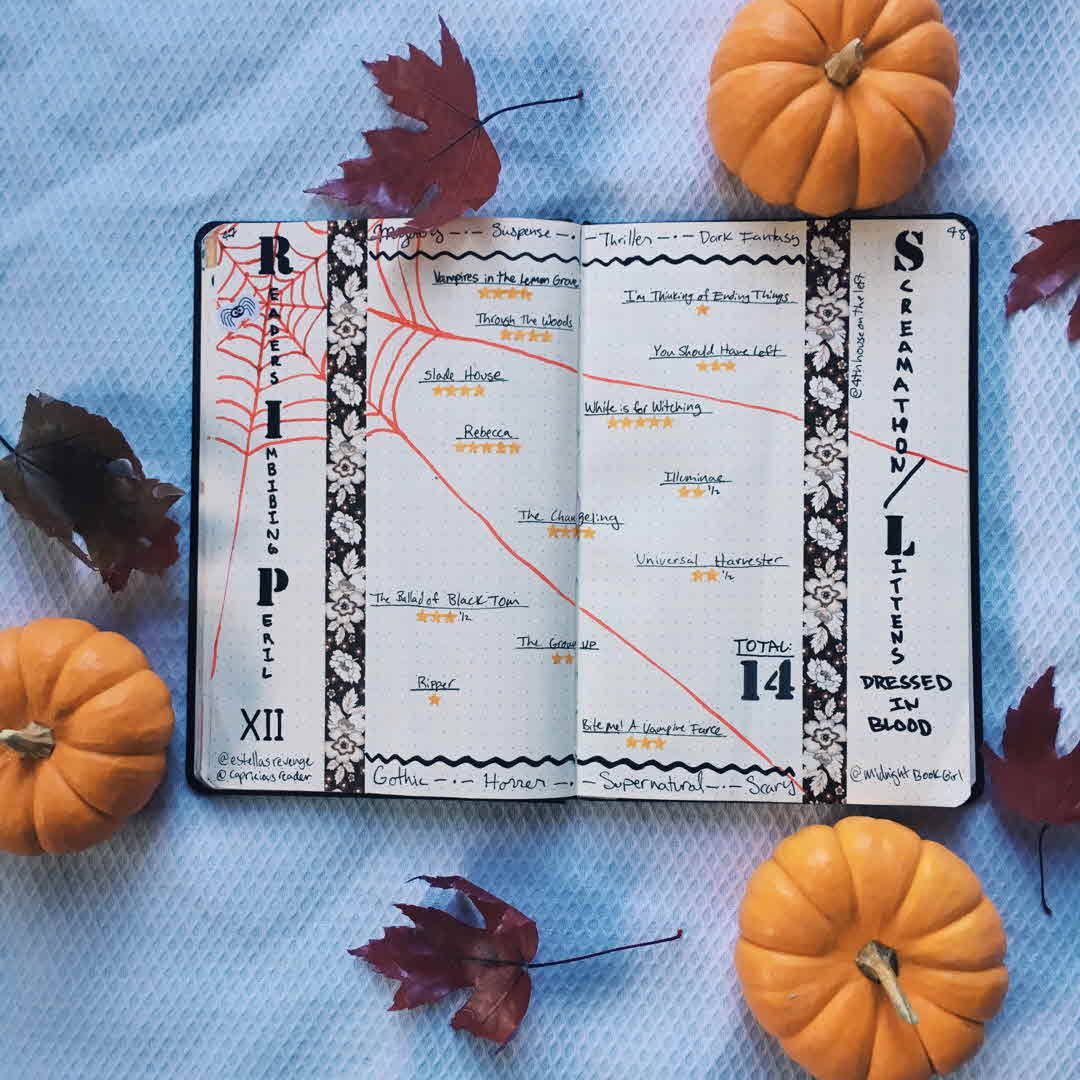 READERS
IMBIBING
PERIL
XII
@estellasrevenge
@capriciousreader
Mystery —·— Suspense —·
Vampires in the Lemon Grove
Through The Woods
Slade House
Rebecca
The Changeling
The Ballad of Black Tom
1/2
The Grownup
Ripper
Gothic —·— Horror —·
— Thriller —·— Dark Fantasy
I'm Thinking of Ending Things
You Should Have Left
White is for Witching
Illuminae
1/2
Universal Harvester
1/2
TOTAL:
14
Bite Me! A Vampire Farce
Supernatural —·— Scary
48
SCREAMATHON/
@4thhouseontheleft
LITTENS
DRESSED
IN
BLOOD
@midnightBookGirl